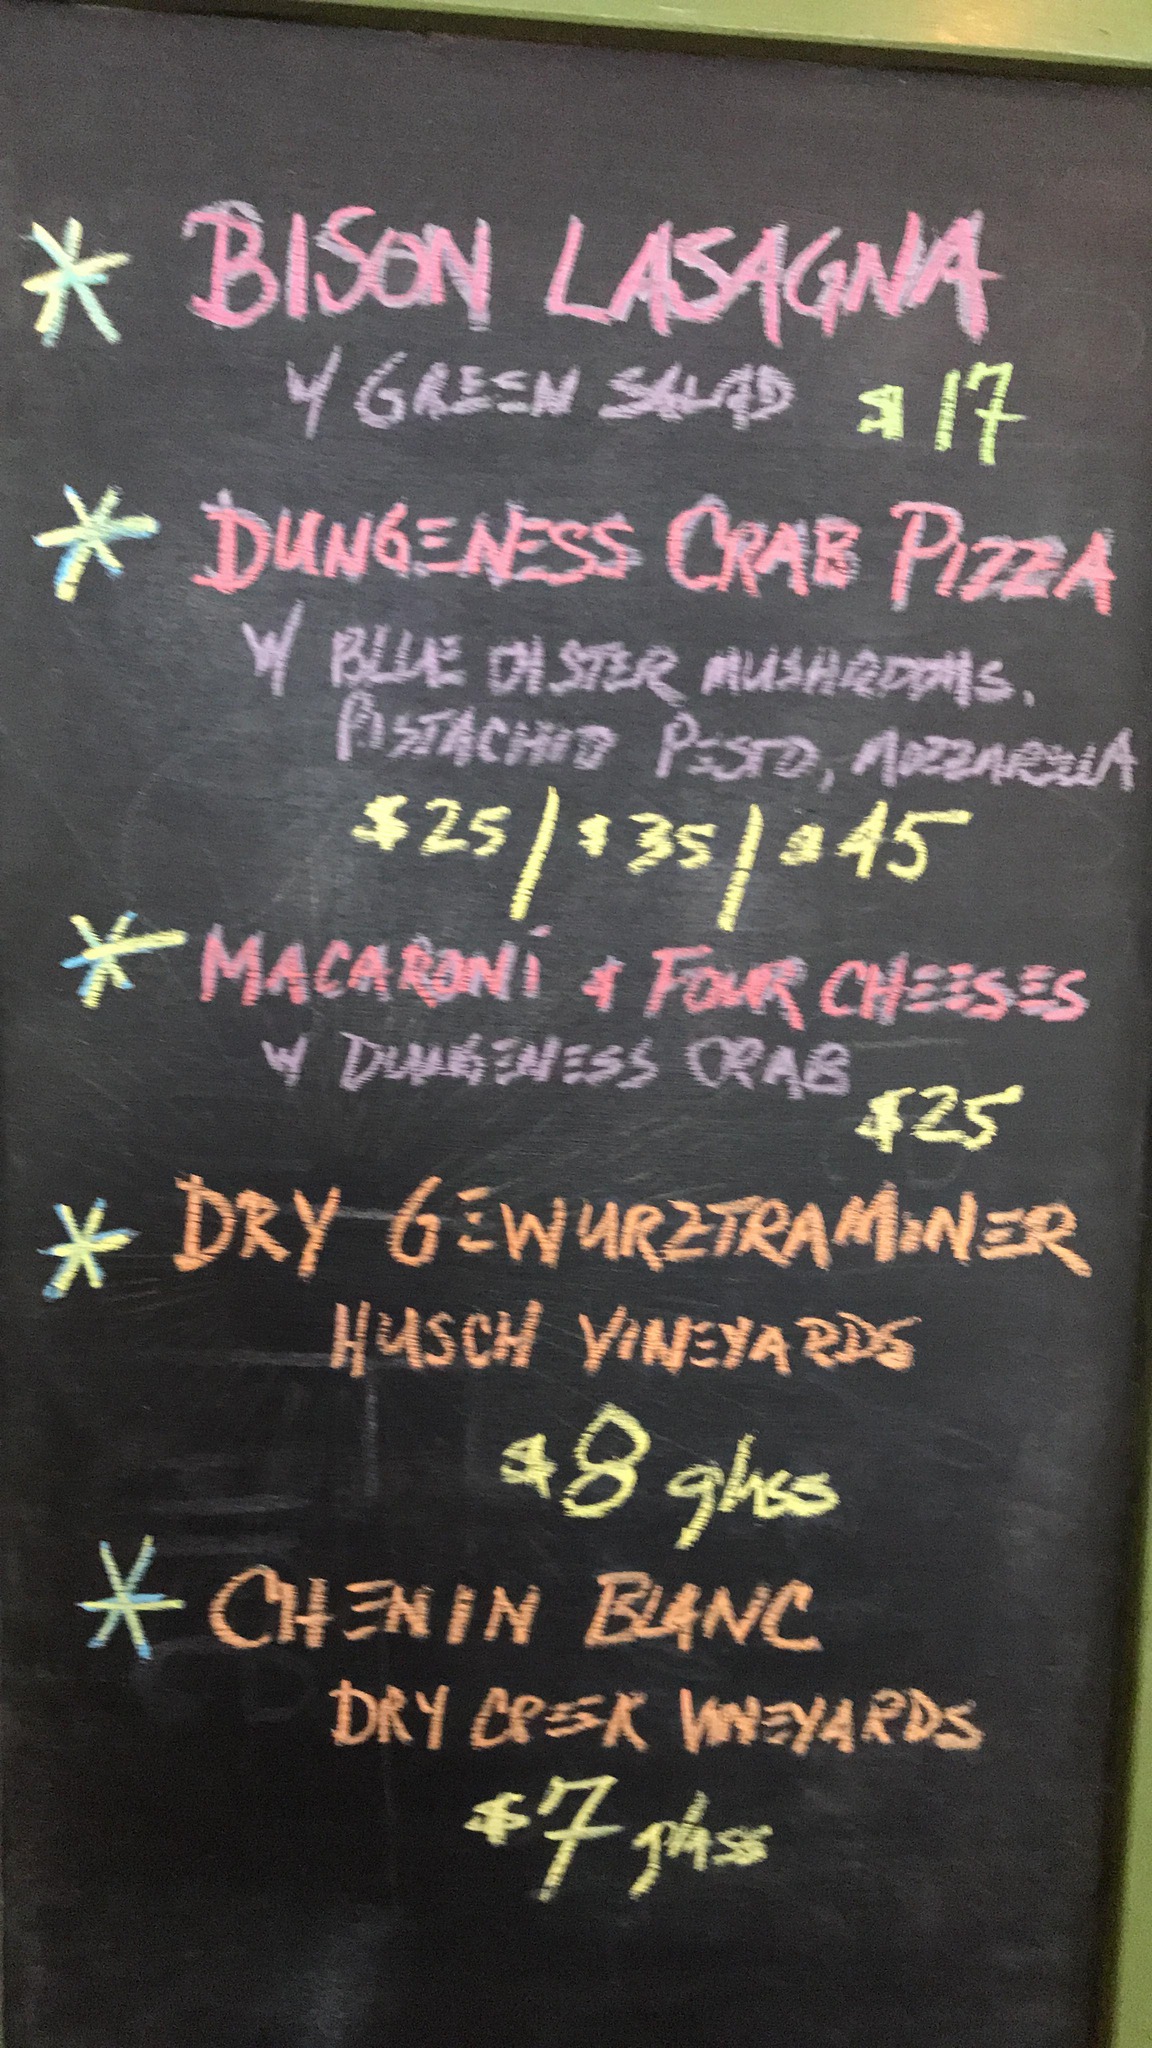 * BISON LASAGNA
W/ GREEN SALAD $17
* DUNGENESS CRAB PIZZA
W/ BLUE OISTER MUSHROOMS,
PISTACHIO PESTO, MOZZARELLA
$25/$35/$45
* MACARONI & FOUR CHEESES
W/ DUNGENESS CRAB
$25
* DRY GEWURZTRAMINER
HUSCH VINEYARDS
$8 glass
* CHENIN BLANC
DRY CREEK VINEYARDS
$7 glass